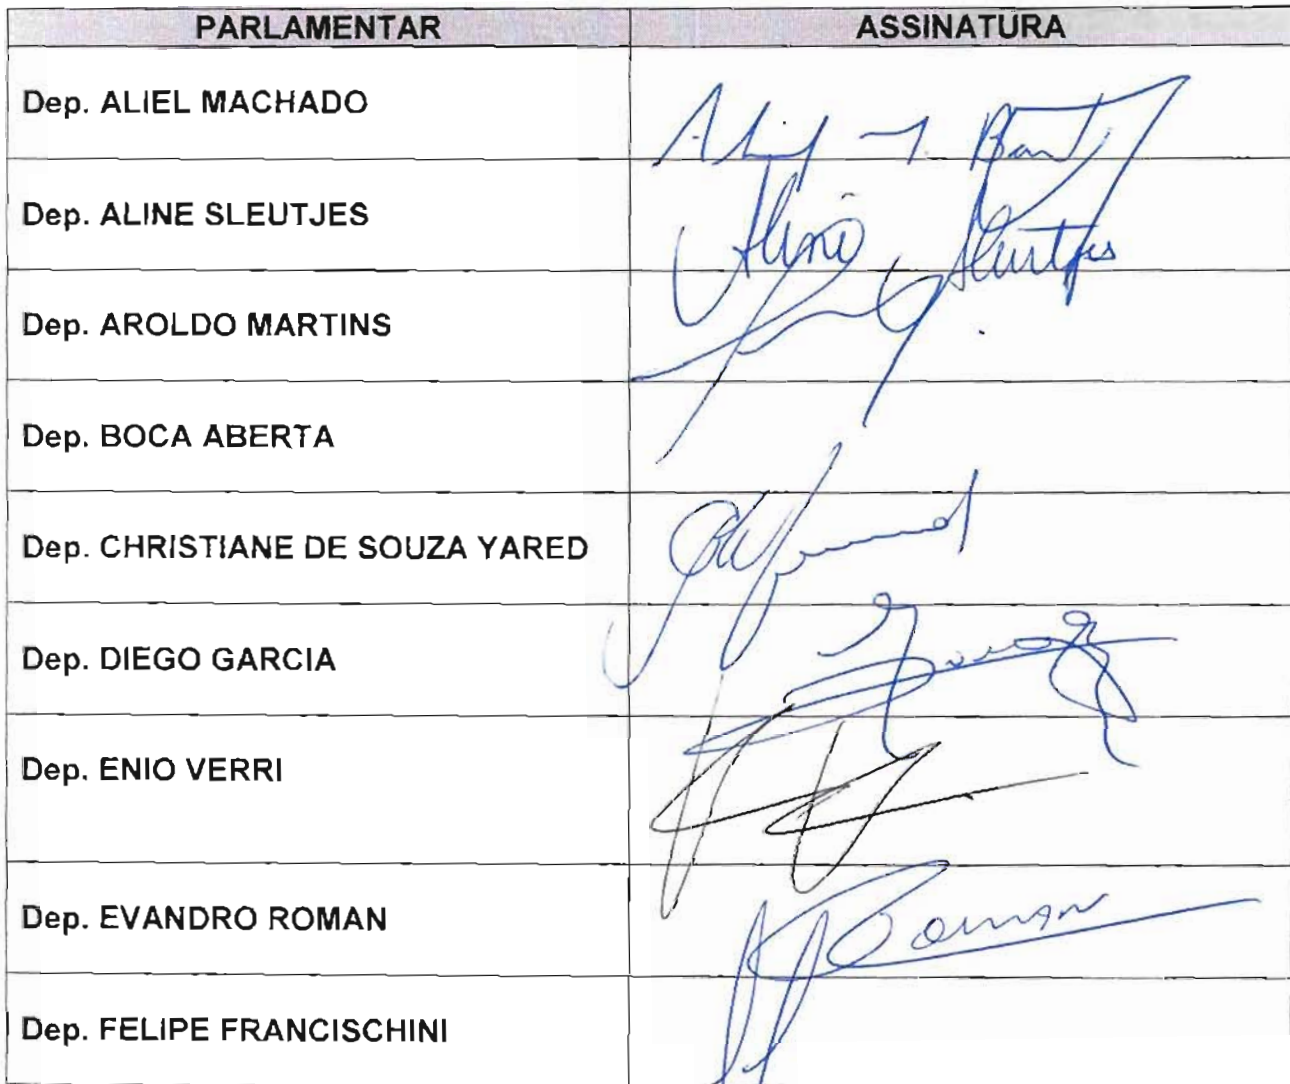 PARLAMENTAR ASSINATURA
Dep. ALIEL MACHADO
Dep. ALINE SLEUTJES Aline Sleutjes
Dep. AROLDO MARTINS
Dep. BOCA ABERTA
Dep. CHRISTIANE DE SOUZA YARED
Dep. DIEGO GARCIA
Dep. ENIO VERRI
Dep. EVANDRO ROMAN Roman
Dep. FELIPE FRANCISCHINI